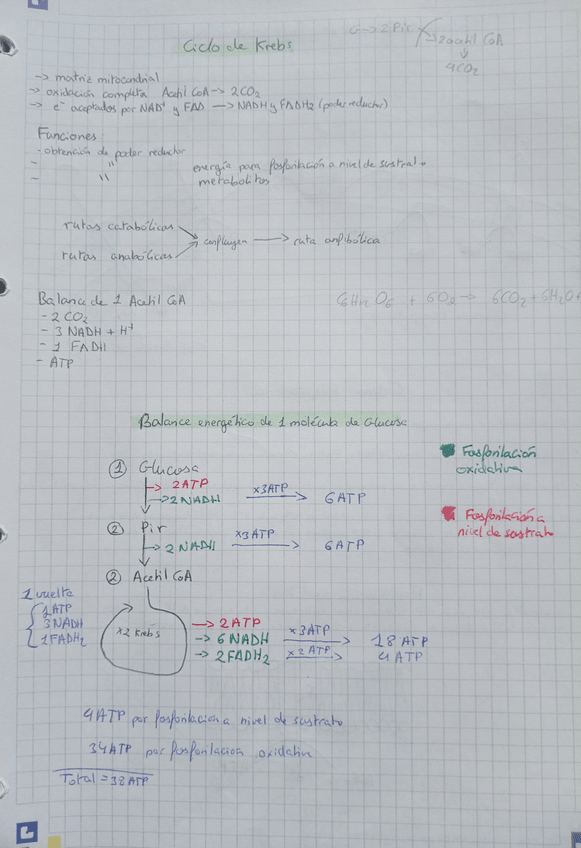 Ciclo de Krebs
G → 2 Pir → 2 acetil CoA
↓
4CO2
→ matriz mitocondrial
→ oxidación completa Acetil CoA → 2CO2
→ e⁻ aceptados por NAD⁺ y FAD → NADH y FADH2 (poder reductor)
Funciones:
- obtención de poder reductor
- " energía para fosforilación a nivel de sustrato
- " metabolitos
rutas catabólicas
confluyen → ruta anfibólica
rutas anabólicas
Balance de 1 Acetil CoA
- 2 CO2
- 3 NADH + H⁺
- 1 FADH
- ATP
+ 6O2 → 6CO2 + 6H2O +
Balance energético de 1 molécula de Glucosa
Fosforilación
oxidativa
Fosforilación a
nivel de sustrato
① Glucosa
→ 2ATP
→ 2NADH ×3ATP → 6ATP
② Pir
→ 2NADH ×3ATP → 6ATP
② Acetil CoA
1 vuelta
1ATP
3NADH
1FADH2
×2 Krebs
→ 2ATP
→ 6NADH ×3ATP → 18 ATP
→ 2FADH2 ×2ATP → 4 ATP
4ATP por fosforilación a nivel de sustrato
34ATP por fosforilación oxidativa
Total = 38 ATP